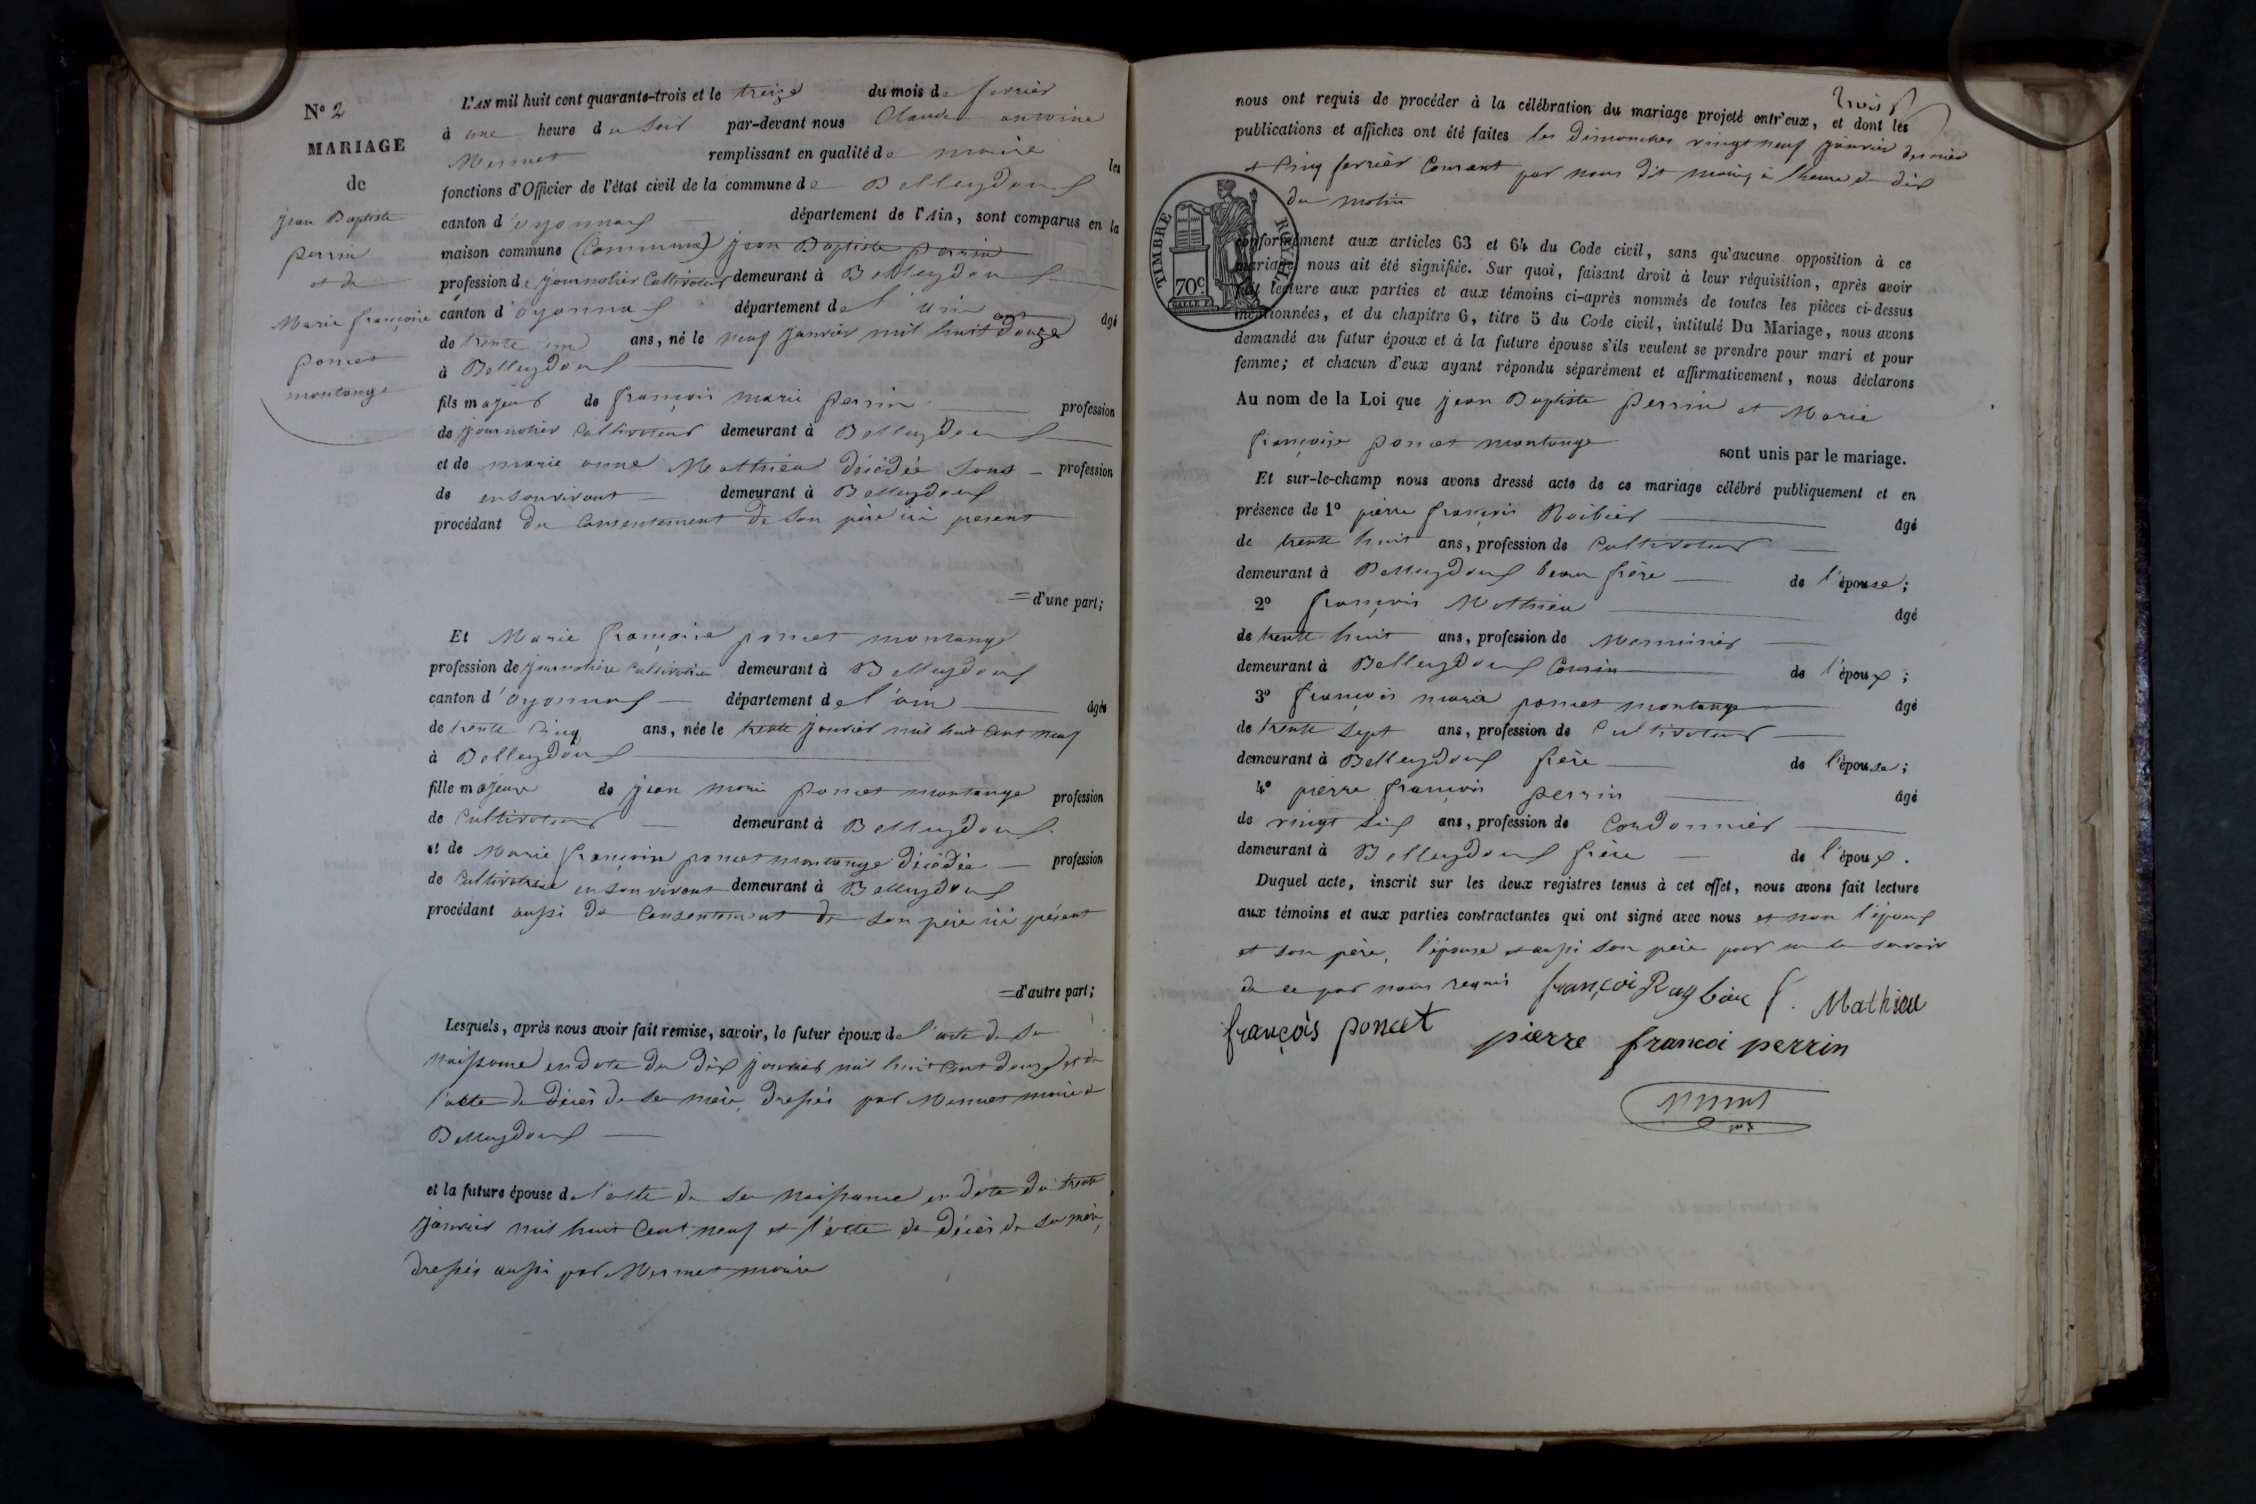 N° 2
MARIAGE
de
jean Baptiste
perrin
et de
Marie françoise
poncet
montange
L'AN mil huit cent quarante-trois et le treize du mois de fevrier
à une heure du soir par-devant nous Claude antoine
Mermet remplissant en qualité de maire les
fonctions d'Officier de l'état civil de la commune de Belleydoux
canton d'oyonnax département de l'Ain, sont comparus en la
maison commune (Commune) jean Baptiste perrin
profession de journalier Cultivateur demeurant à Belleydoux
canton d'oyonnax département de l'ain âgé
de trente un ans, né le neuf janvier mil huit cent douze
à Belleydoux
fils majeur de françois marie perrin profession
de journalier Cultivateur demeurant à Belleydoux
et de marie anne Mathieu décédée sans profession
de en son vivant demeurant à Belleydoux
procédant du Consentement de son père ici présent
=d'une part;
Et Marie françoise poncet montange
profession de journalière Cultivatrice demeurant à Belleydoux
canton d'oyonnax département de l'ain âgée
de trente Cinq ans, née le trente janvier mil huit Cent neuf
à Belleydoux
fille majeure de jean marie poncet montange profession
de Cultivateur demeurant à Belleydoux
et de Marie françoise poncet montange décédée profession
de Cultivatrice en son vivant demeurant à Belleydoux
procédant aussi du Consentement de son père ici présent
=d'autre part;
Lesquels, après nous avoir fait remise, savoir, le futur époux de l'acte de sa
naissance en date du dix janvier mil huit Cent douze et de
l'acte de décès de sa mère, dressés par Mermet maire de
Belleydoux
et la future épouse de l'acte de sa naissance en date du trente
janvier mil huit Cent neuf et l'acte de décès de sa mère,
dressés aussi par Mermet maire
trois
nous ont requis de procéder à la célébration du mariage projeté entr'eux, et dont les
publications et affiches ont été faites les dimanches vingt neuf janvier dernier
et Cinq fevrier Courant par nous dit maire, à l'heure de dix
du matin
TIMBRE ROYAL
70c.
conformément aux articles 63 et 64 du Code civil, sans qu'aucune opposition à ce
mariage nous ait été signifiée. Sur quoi, faisant droit à leur réquisition, après avoir
fait lecture aux parties et aux témoins ci-après nommés de toutes les pièces ci-dessus
mentionnées, et du chapitre 6, titre 5 du Code civil, intitulé Du Mariage, nous avons
demandé au futur époux et à la future épouse s'ils veulent se prendre pour mari et pour
femme; et chacun d'eux ayant répondu séparément et affirmativement, nous déclarons
Au nom de la Loi que jean Baptiste perrin et Marie
françoise poncet montange sont unis par le mariage.
Et sur-le-champ nous avons dressé acte de ce mariage célébré publiquement et en
présence de 1° pierre françois Raibier âgé
de trente huit ans, profession de Cultivateur
demeurant à Belleydoux beau frère de l'épouse;
2° françois Mathieu âgé
de trente huit ans, profession de Menuisier
demeurant à Belleydoux Cousin de l'époux;
3° françois marie poncet montange âgé
de trente sept ans, profession de Cultivateur
demeurant à Belleydoux frère de l'épouse;
4° pierre françois perrin âgé
de vingt six ans, profession de Cordonnier
demeurant à Belleydoux frère de l'époux.
Duquel acte, inscrit sur les deux registres tenus à cet effet, nous avons fait lecture
aux témoins et aux parties contractantes qui ont signé avec nous et non l'époux
et son père, l'épouse et aussi son père pour ne le savoir
de ce par nous requis françoi Raybier f. Mathieu
françois poncet pierre francoi perrin
Mermet